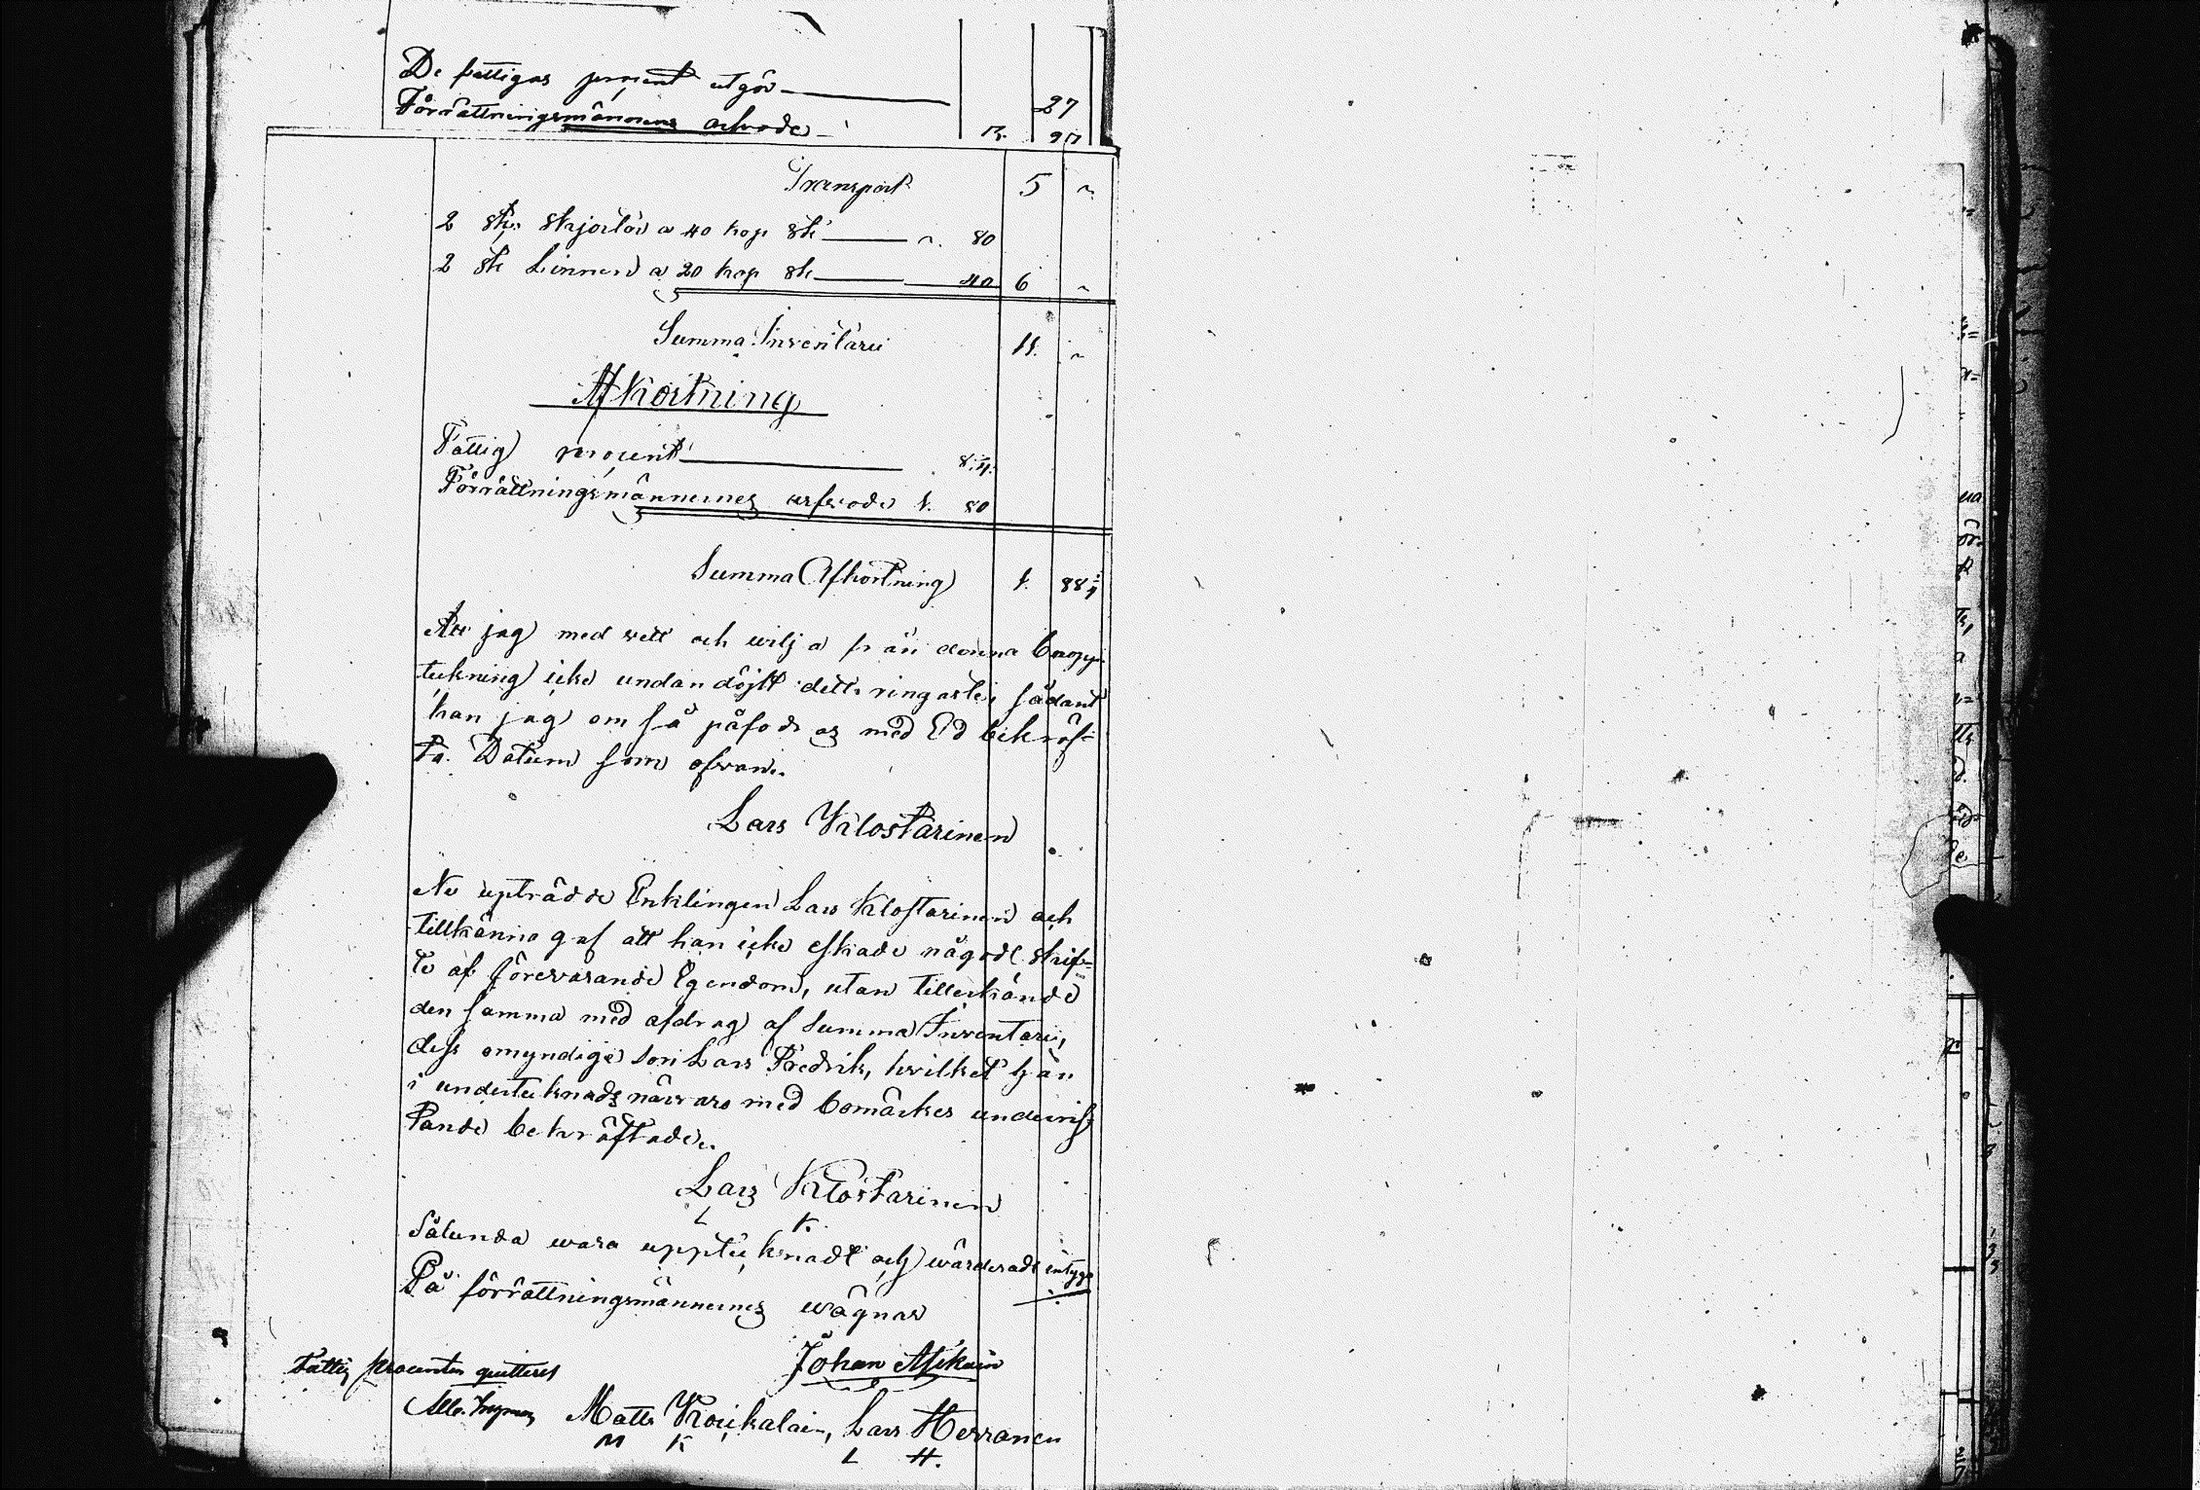 De fattigas procent utgör 27
Förrättningsmännens arfvode R.
Transport 5 "
2 st. skjortor a 40 kop st " 80
2 st Linnen a 20 kop st 40 6 "
Summa Inventarii 11. "
Afkortning
Fattig procent 8 1/4.
Förrättningsmännernes arfvode 1. 80
Summa Afkortning 1. 88 1/4
Att jag med vett och wilja från denna Boupp-
teckning icke undandöjlt dett ringaste, sådant
kan jag om så påfodras med Ed bekräf-
ta. Datum som ofvan.
Lars Klostarinen
Nu upträdde Enklingen Lars Klostarinen och
tillkänna gaf att han icke eskade någodt skif-
te af förevarande Egendom, utan tillerkände
den samma med afdrag af Summa Inventarii,
dess omyndige son Lars Fredrik, hvilket han
i undertecknads närvaro med bomärkes underris-
tande bekräftade.
Lars Klostarinen
L K.
Sålunda wara uppteknadt och wärderadt intyga
På förrättningsmännernes wägnar
Johan
Fattig procenten quitteras
Matts Lars Herranen
M K L H.